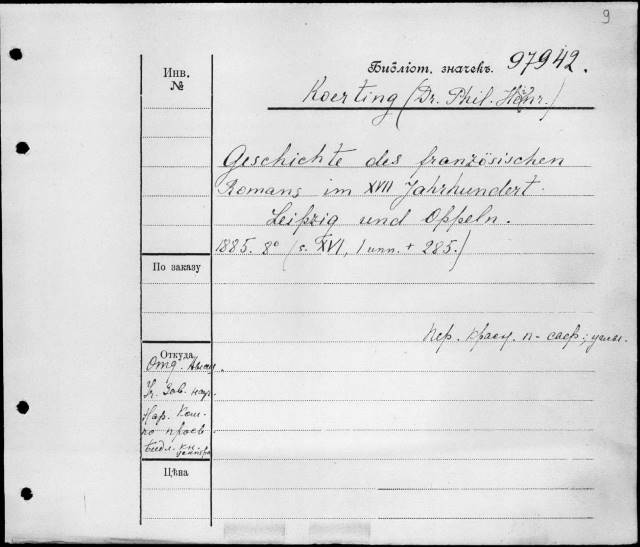 9
Инв.
№
Библіот. значекъ 97942.
Koerting (Dr. Phil. Heinr.)
Geschichte des französischen
Romans im XVII Jahrhundert.
Leipzig und Oppeln.
1885. 8° (s. XVI, 1 unn. + 285.)
По заказу
Пер. красн. п- саф; углы.
Откуда
Отд.
Зав.
Нар. Ком-
по просв.
Библ. кн.
Цѣна